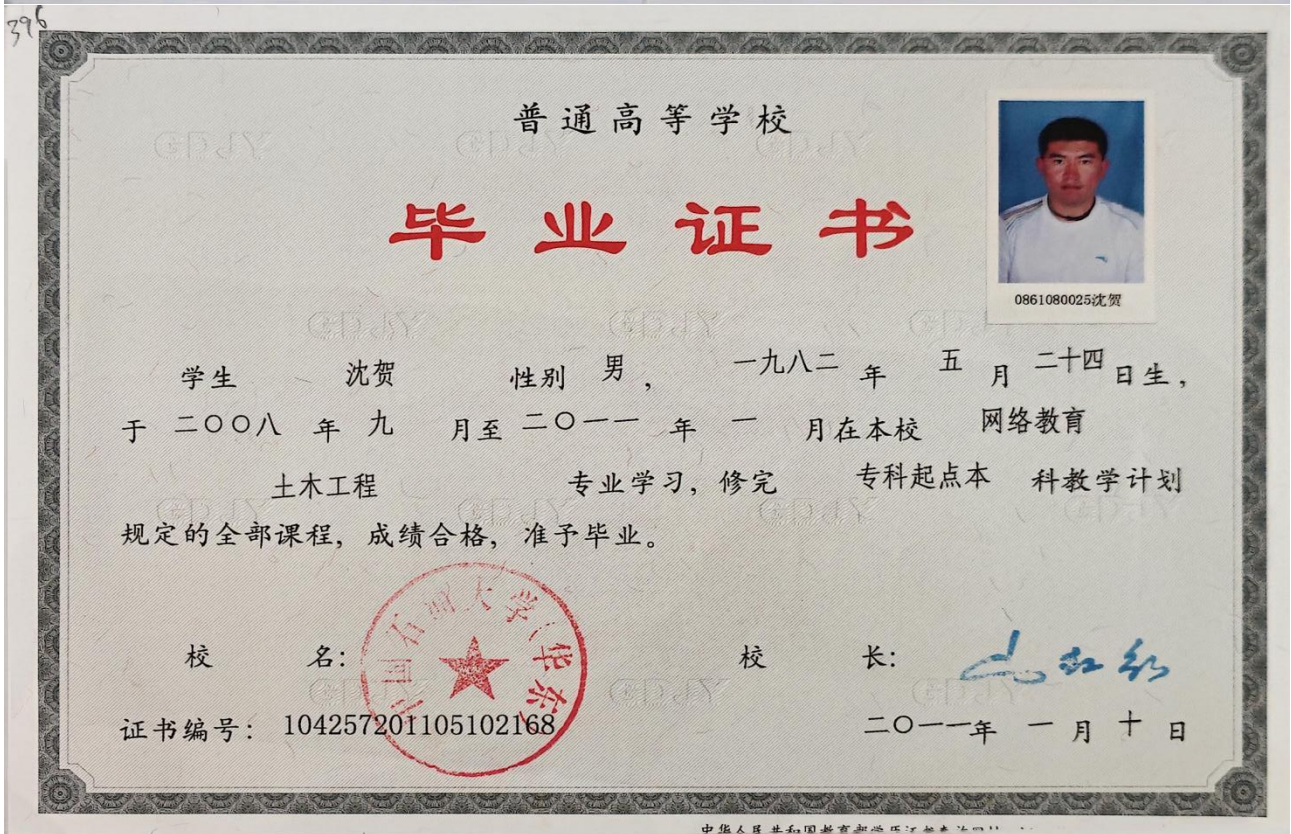 396
普通高等学校
毕业证书
0861080025沈贺
学生 沈贺 性别 男, 一九八二 年 五 月 二十四 日生,
于 二〇〇八 年 九 月至 二〇一一 年 一 月在本校 网络教育
土木工程 专业学习, 修完 专科起点本 科教学计划
规定的全部课程, 成绩合格, 准予毕业。
中国石油大学(华东)
校 名: 校 长:
证书编号: 104257201105102168 二〇一一年 一 月 十 日